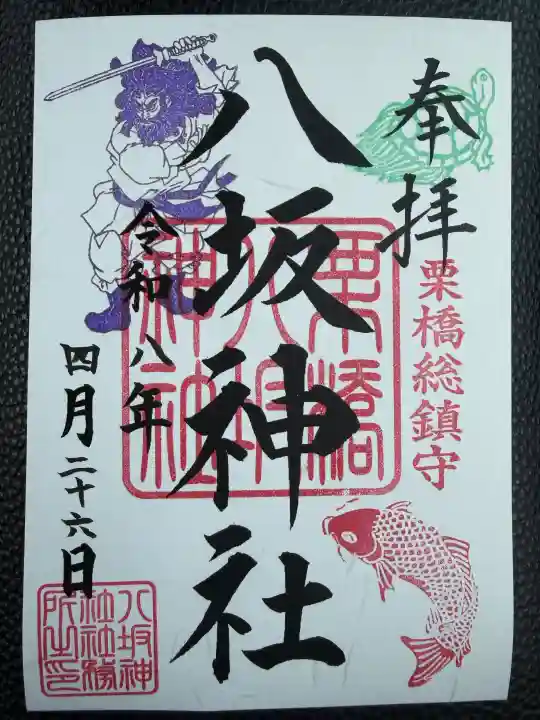 奉拝
栗橋総鎮守
八坂神社
栗橋
八坂
神社
令和八年
四月二十六日
八坂神
社社務
所之印